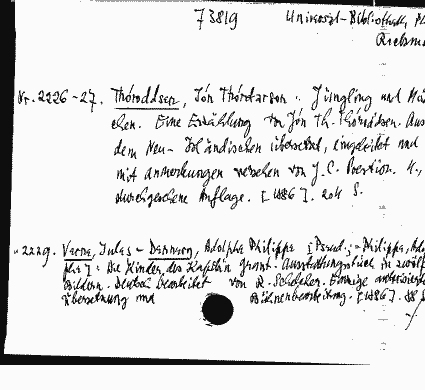 73819 Universal-Bibliothek, Ph
Reclam
Nr. 2226-27. Thóroddsen, Jón Thórdarson: Jüngling und Mäd
chen. Eine Erzählung von Jón Th. Thóroddsen. Aus
dem Neu-Isländischen übersetzt, eingeleitet und
mit Anmerkungen versehen von J. C. Poestion. 4.,
durchgesehene Auflage. [1886]. 204 S.
2229. Verne, Jules - Dennery, Adolphe Philippe [Pseud.; = Philippe, Ado
phe]: Die Kinder des Kapitän Grant. Ausstattungsstück in zwölf
Bildern. Deutsch bearbeitet von R. Schelcher. Einzige autorisierte
Übersetzung und Bühnenbearbeitung. [1886]. 88 S.